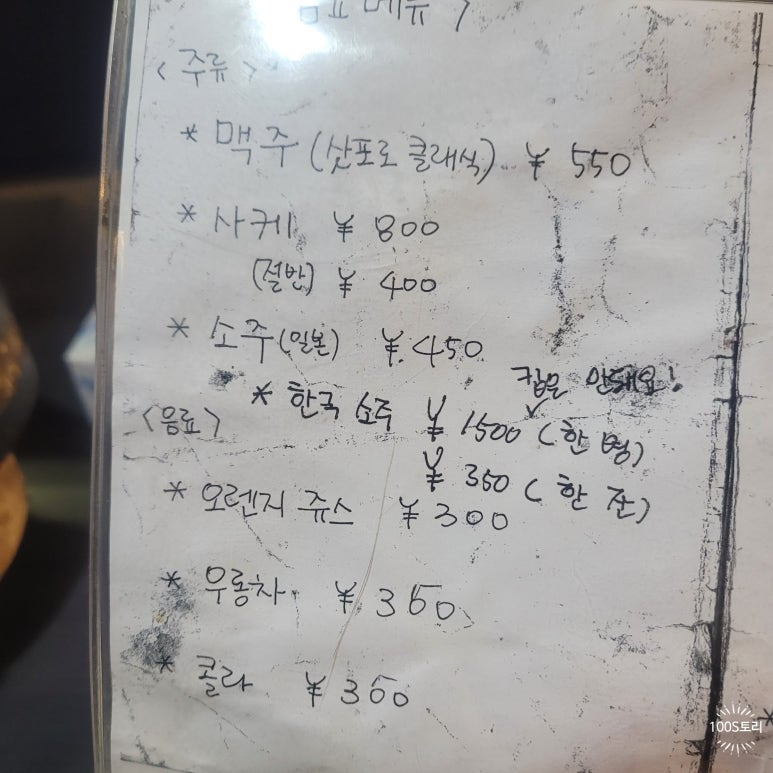 음료 메뉴 >
< 주류 >
* 맥주 (삿포로 클래식) ¥ 550
* 사케 ¥ 800
(절반) ¥ 400
* 소주 (일본) ¥ 450
컵은 안돼요!
* 한국 소주 ¥ 1500 ( 한 병)
¥ 350 ( 한 잔)
<음료 >
* 오렌지 쥬스 ¥ 300
* 우롱차 ¥ 350
* 콜라 ¥ 350
100S토리